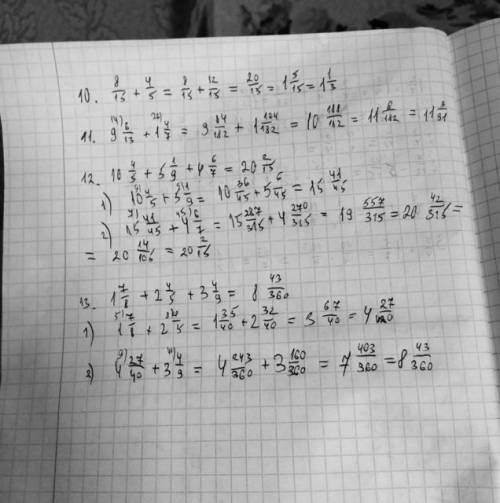 10. 8/15 + 4/5 = 8/15 + 12/15 = 20/15 = 1 5/15 = 1 1/3
11. 9 6/13 + 1 4/7 = 9 84/182 + 1 104/182 = 10 188/182 = 11 6/182 = 11 3/91
12. 10 4/5 + 5 1/9 + 4 6/7 = 20 2/15
1) 10 4/5 + 5 1/9 = 10 36/45 + 5 5/45 = 15 41/45
2) 15 41/45 + 4 6/7 = 15 287/315 + 4 270/315 = 19 557/315 = 20 42/315 =
= 20 14/105 = 20 2/15
13. 1 7/8 + 2 4/5 + 3 4/9 = 8 43/360
1) 1 7/8 + 2 4/5 = 1 35/40 + 2 32/40 = 3 67/40 = 4 27/40
2) 4 27/40 + 3 4/9 = 4 243/360 + 3 160/360 = 7 403/360 = 8 43/360